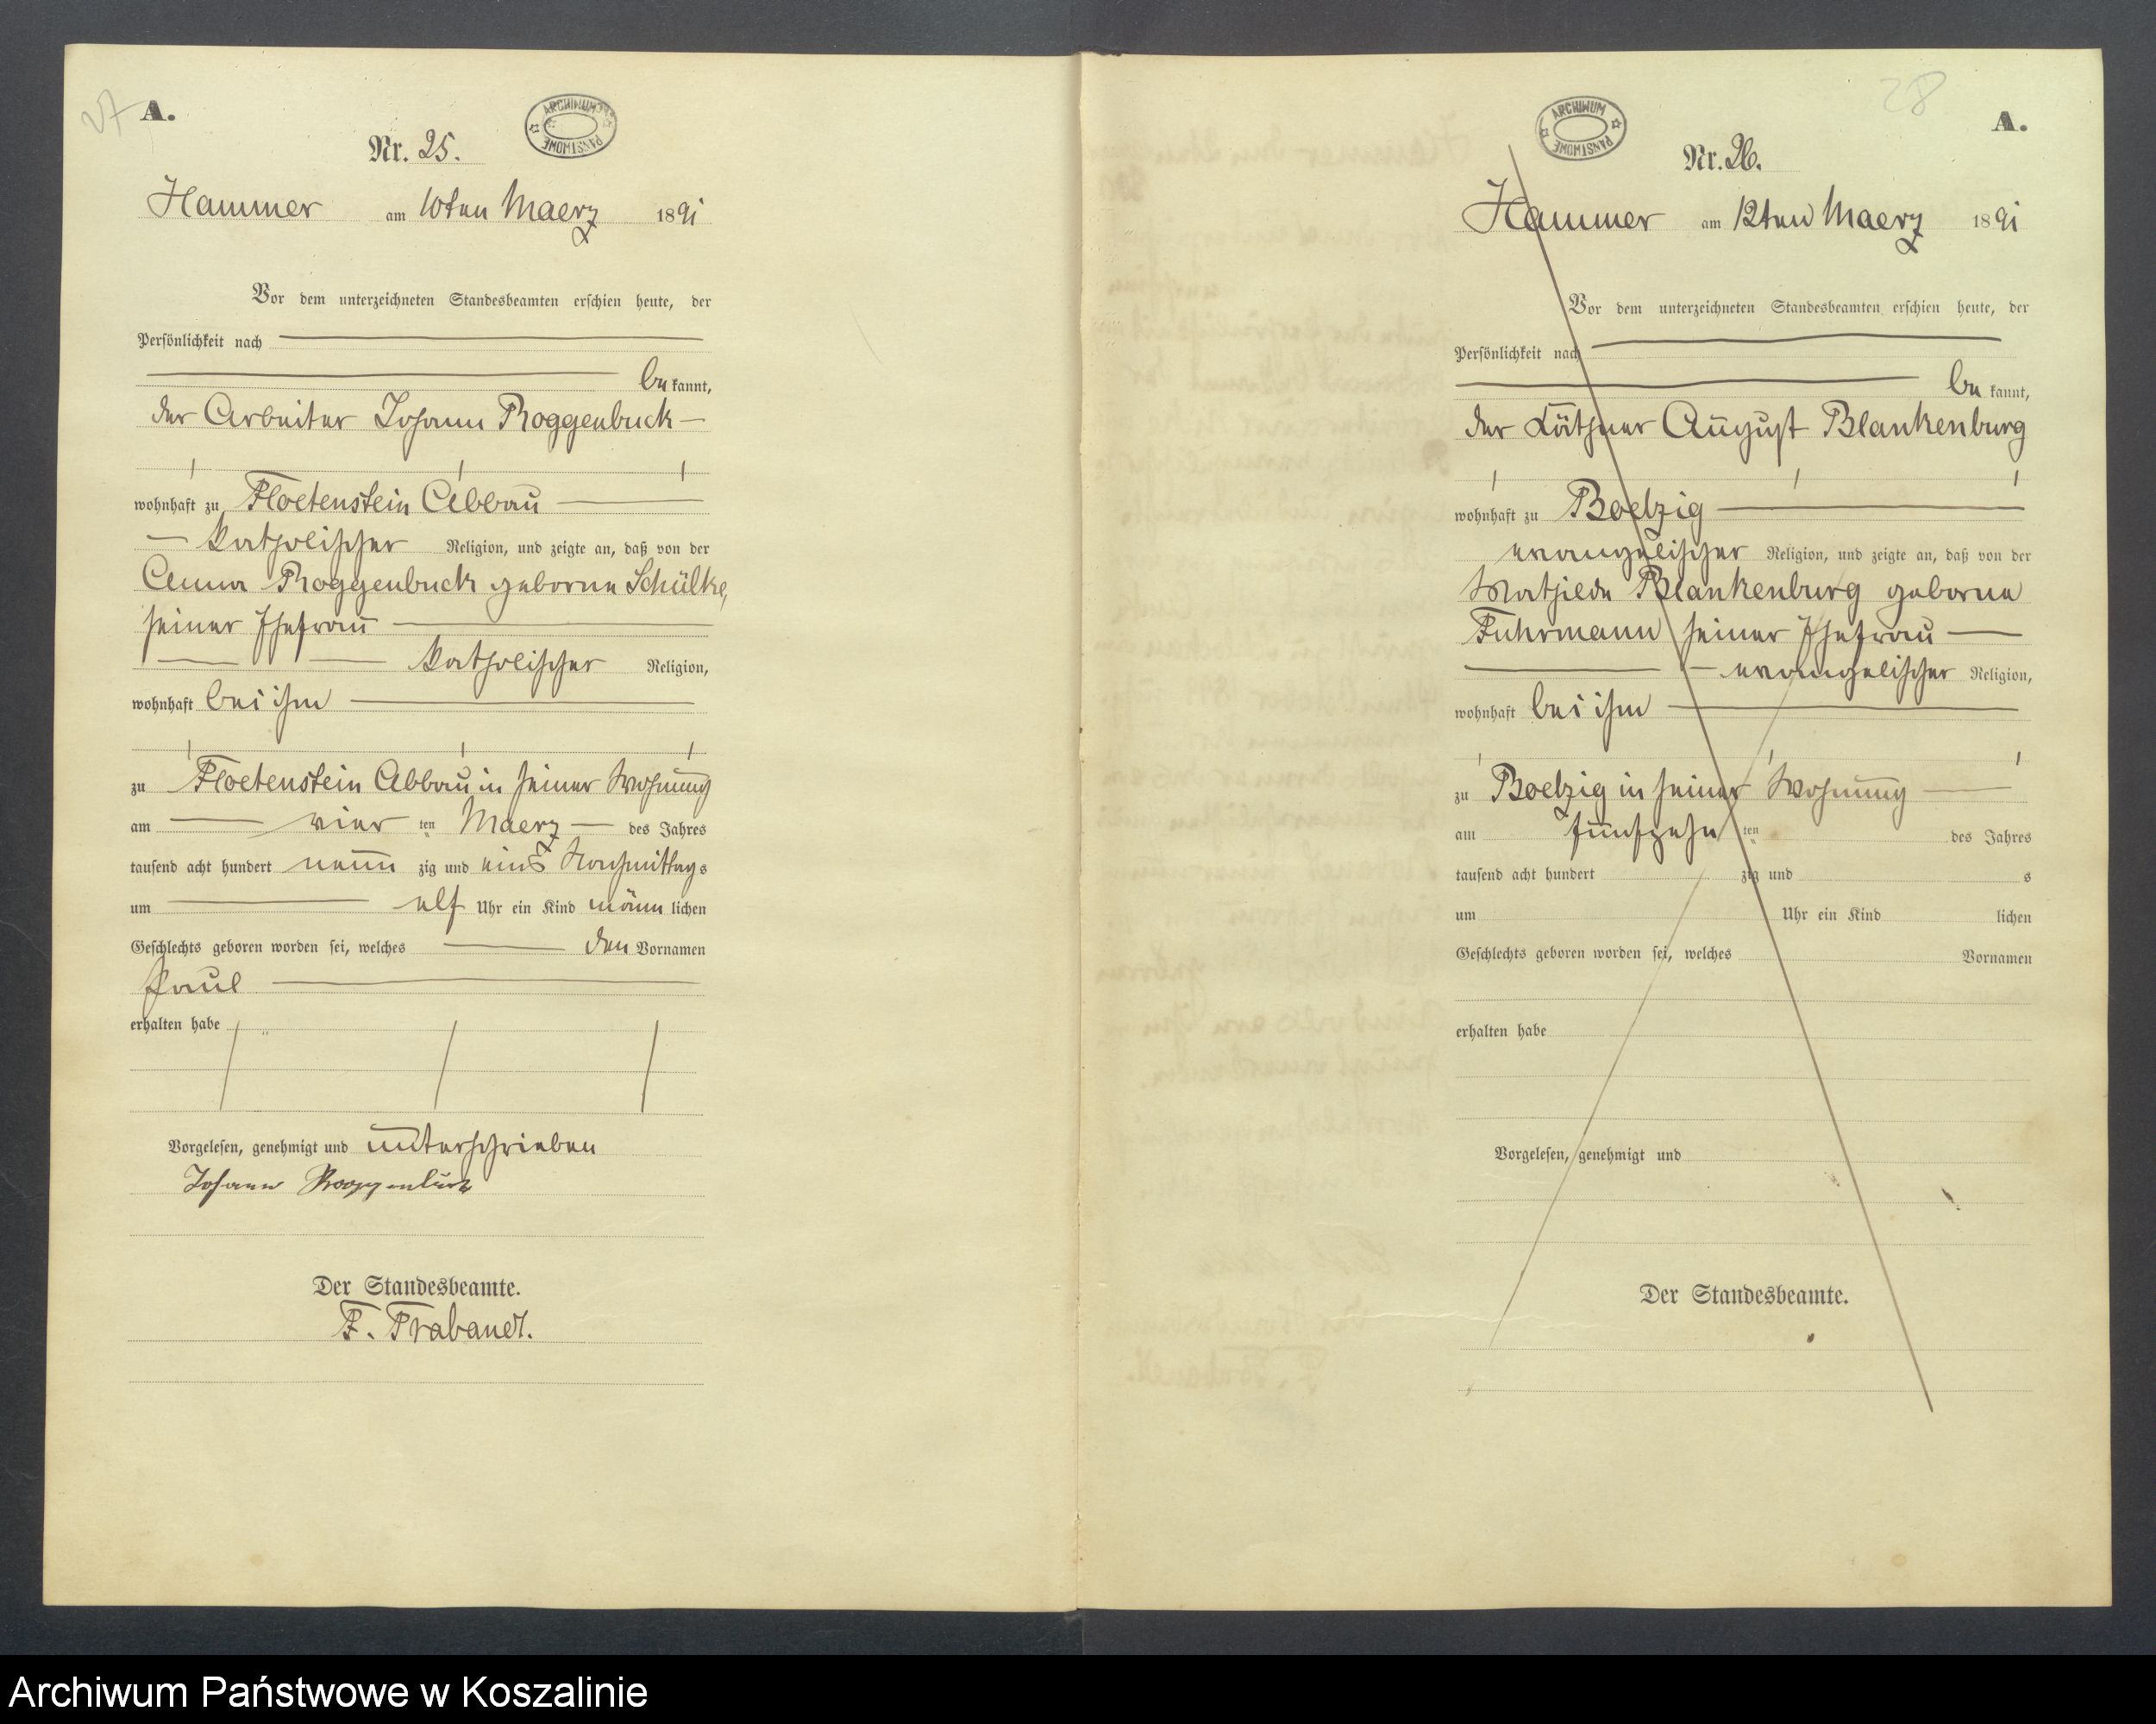 27
A.
ARCHIWUM PAŃSTWOWE
Nr. 25.
Hammer am 10ten Maerz 1891
Vor dem unterzeichneten Standesbeamten erschien heute, der
Persönlichkeit nach
be kannt,
der Arbeiter Johann Roggenbuck
wohnhaft zu Floetenstein Abbau
katholischer Religion, und zeigte an, daß von der
Anna Roggenbuck geborne Schülke,
seiner Ehefrau
katholischer Religion,
wohnhaft bei ihm
zu Floetenstein Abbau in seiner Wohnung
am vier ten Maerz des Jahres
tausend acht hundert neun zig und eins Nachmittags
um elf Uhr ein Kind männ lichen
Geschlechts geboren worden sei, welches den Vornamen
Paul
erhalten habe
Vorgelesen, genehmigt und unterschrieben
Johann Roggenbuck
Der Standesbeamte.
F. Trabandt.
28
A.
ARCHIWUM PAŃSTWOWE
Nr. 26.
Hammer am 12ten Maerz 1891
Vor dem unterzeichneten Standesbeamten erschien heute, der
Persönlichkeit nach
be kannt,
der Käthner August Blankenburg
wohnhaft zu Boelzig
evangelischer Religion, und zeigte an, daß von der
Mathilde Blankenburg geborne
Fuhrmann seiner Ehefrau
evangelischer Religion,
wohnhaft bei ihm
zu Boelzig in seiner Wohnung
am fünfzehn ten des Jahres
tausend acht hundert zig und s
um Uhr ein Kind lichen
Geschlechts geboren worden sei, welches Vornamen
erhalten habe
Vorgelesen, genehmigt und
Der Standesbeamte.
Archiwum Państwowe w Koszalinie